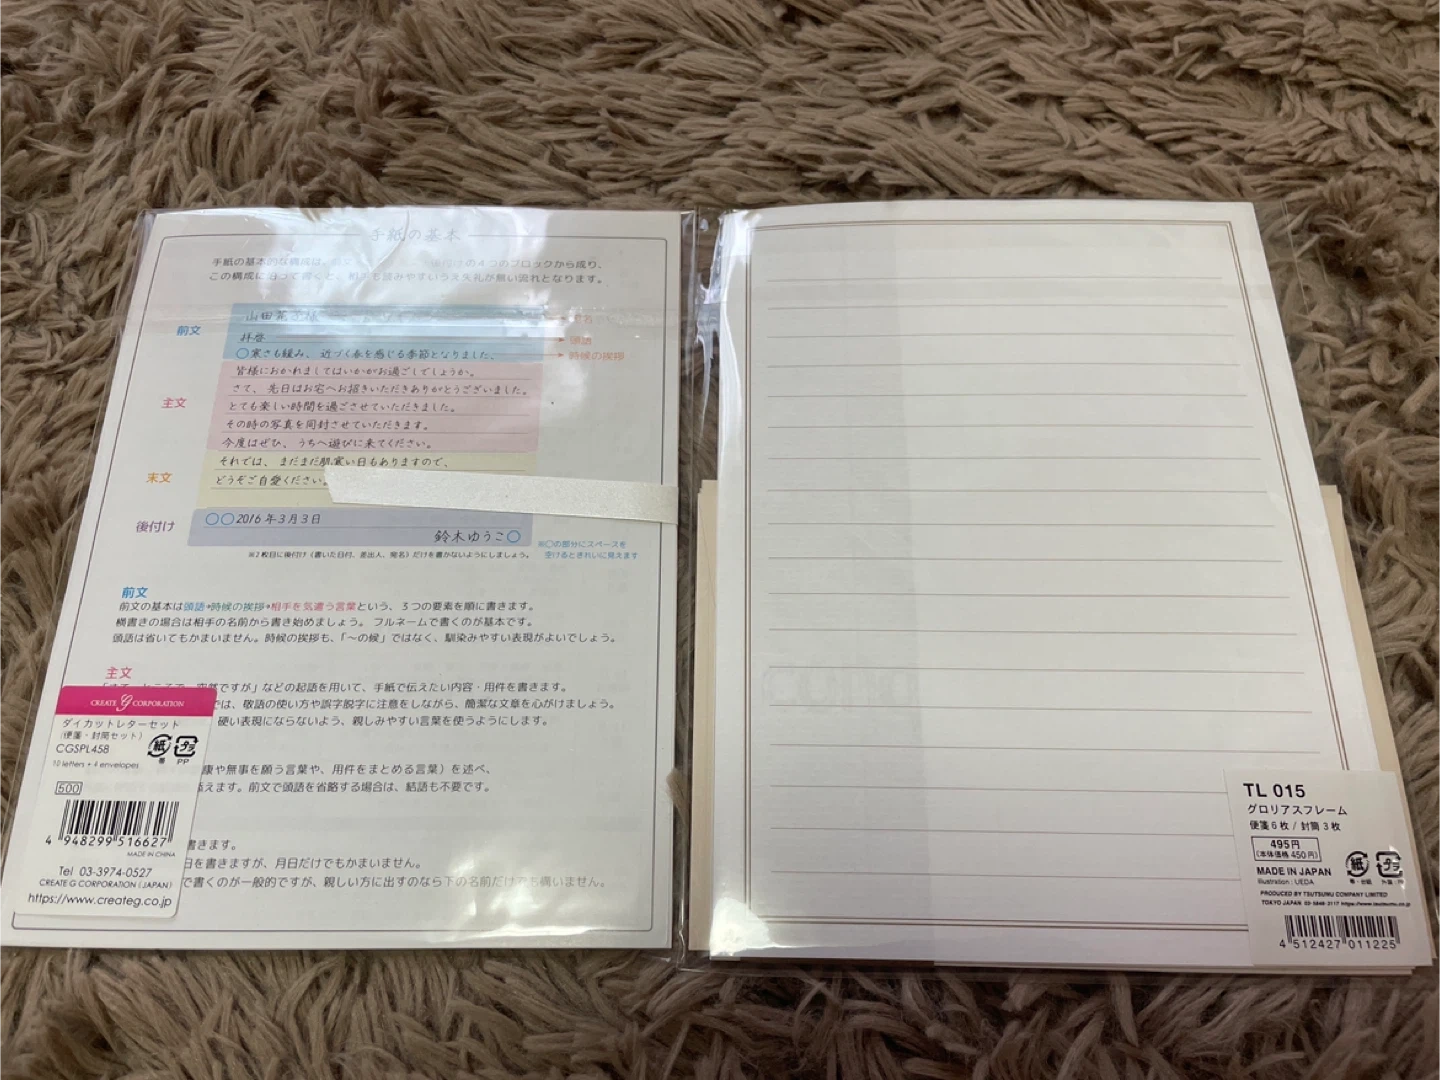 手紙の基本
手紙の基本的な構成は、前文 後付けの4つのブロックから成り、
この構成に沿って書くと、相手も読みやすいうえ失礼が無い流れとなります。
前文
山田花
拝啓
頭語
〇寒さも緩み、近づく春を感じる季節となりました、
時候の挨拶
皆様におかれましてはいかがお過ごしでしょうか。
主文
さて、先日はお宅へお招きいただきありがとうございました。
とても楽しい時間を過ごさせていただきました。
その時の写真を同封させていただきます。
今度はぜひ、うちへ遊びに来てください。
末文
それでは、まだまだ肌寒い日もありますので、
どうぞご自愛ください。
後付け
〇〇2016年3月3日
鈴木ゆうこ〇
※〇の部分にスペースを
空けるときれいに見えます
※2枚目に後付け(書いた日付、差出人、宛名)だけを書かないようにしましょう。
前文
前文の基本は頭語→時候の挨拶→相手を気遣う言葉という、3つの要素を順に書きます。
横書きの場合は相手の名前から書き始めましょう。フルネームで書くのが基本です。
頭語は省いてもかまいません。時候の挨拶も、「〜の候」ではなく、馴染みやすい表現がよいでしょう。
主文
ところで、突然ですが」などの起語を用いて、手紙で伝えたい内容・用件を書きます。
では、敬語の使い方や誤字脱字に注意をしながら、簡潔な文章を心がけましょう。
硬い表現にならないよう、親しみやすい言葉を使うようにします。
康や無事を願う言葉や、用件をまとめる言葉)を述べ、
添えます。前文で頭語を省略する場合は、結語も不要です。
書きます。
日を書きますが、月日だけでもかまいません。
で書くのが一般的ですが、親しい方に出すのなら下の名前だけでも構いません。
CREATE G CORPORATION
ダイカットレターセット
(便箋・封筒セット)
CGSPL458
10 letters + 4 envelopes
紙
帯
プラ
PP
500
4 948299 516627
MADE IN CHINA
Tel 03-3974-0527
CREATE G CORPORATION (JAPAN)
https://www.createg.co.jp
TL 015
グロリアスフレーム
便箋6枚/封筒3枚
495円
(本体価格450円)
MADE IN JAPAN
Illustration : UEDA
紙
帯・台紙
プラ
PRODUCED BY TSUTSUMU COMPANY LIMITED
TOKYO JAPAN 03-5848-3117 https://www.tsutsumu.co.jp
4 512427 011225